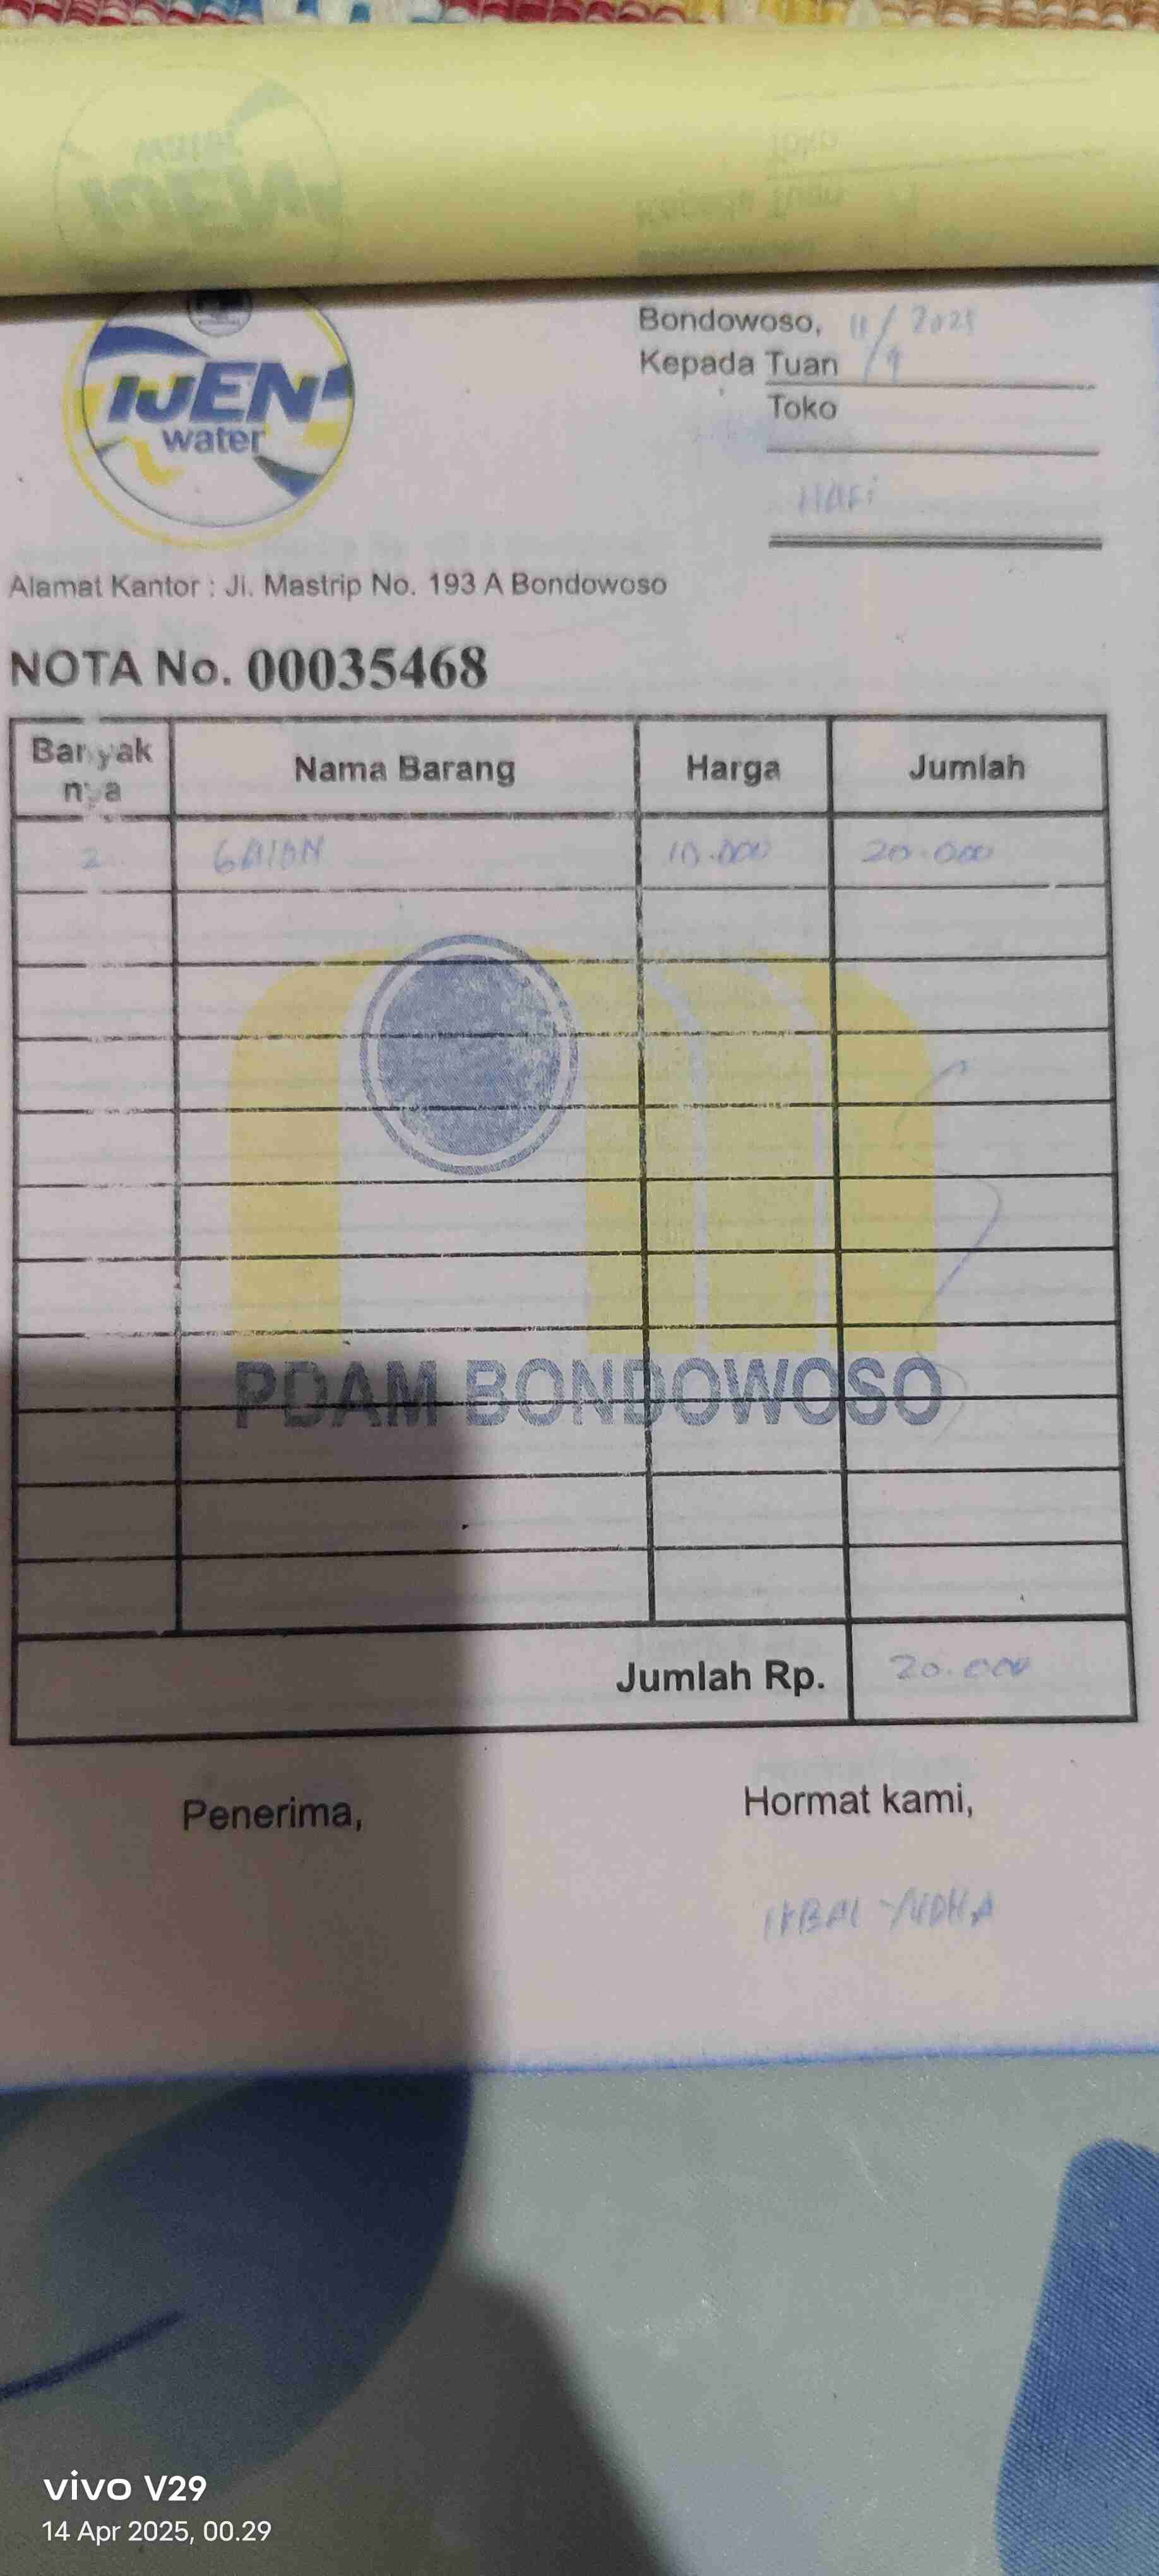 IJEN
water
Bondowoso, 11/ 2025
Kepada Tuan /4
Toko
HAFi
Alamat Kantor : Jl. Mastrip No. 193 A Bondowoso
NOTA No. 00035468
Banyak nya Nama Barang Harga Jumlah
2 GAlON 10.000 20.000
PDAM BONDOWOSO
Jumlah Rp. 20.000
Penerima, Hormat kami,
IKBAL YUDHA
vivo V29
14 Apr 2025, 00.29